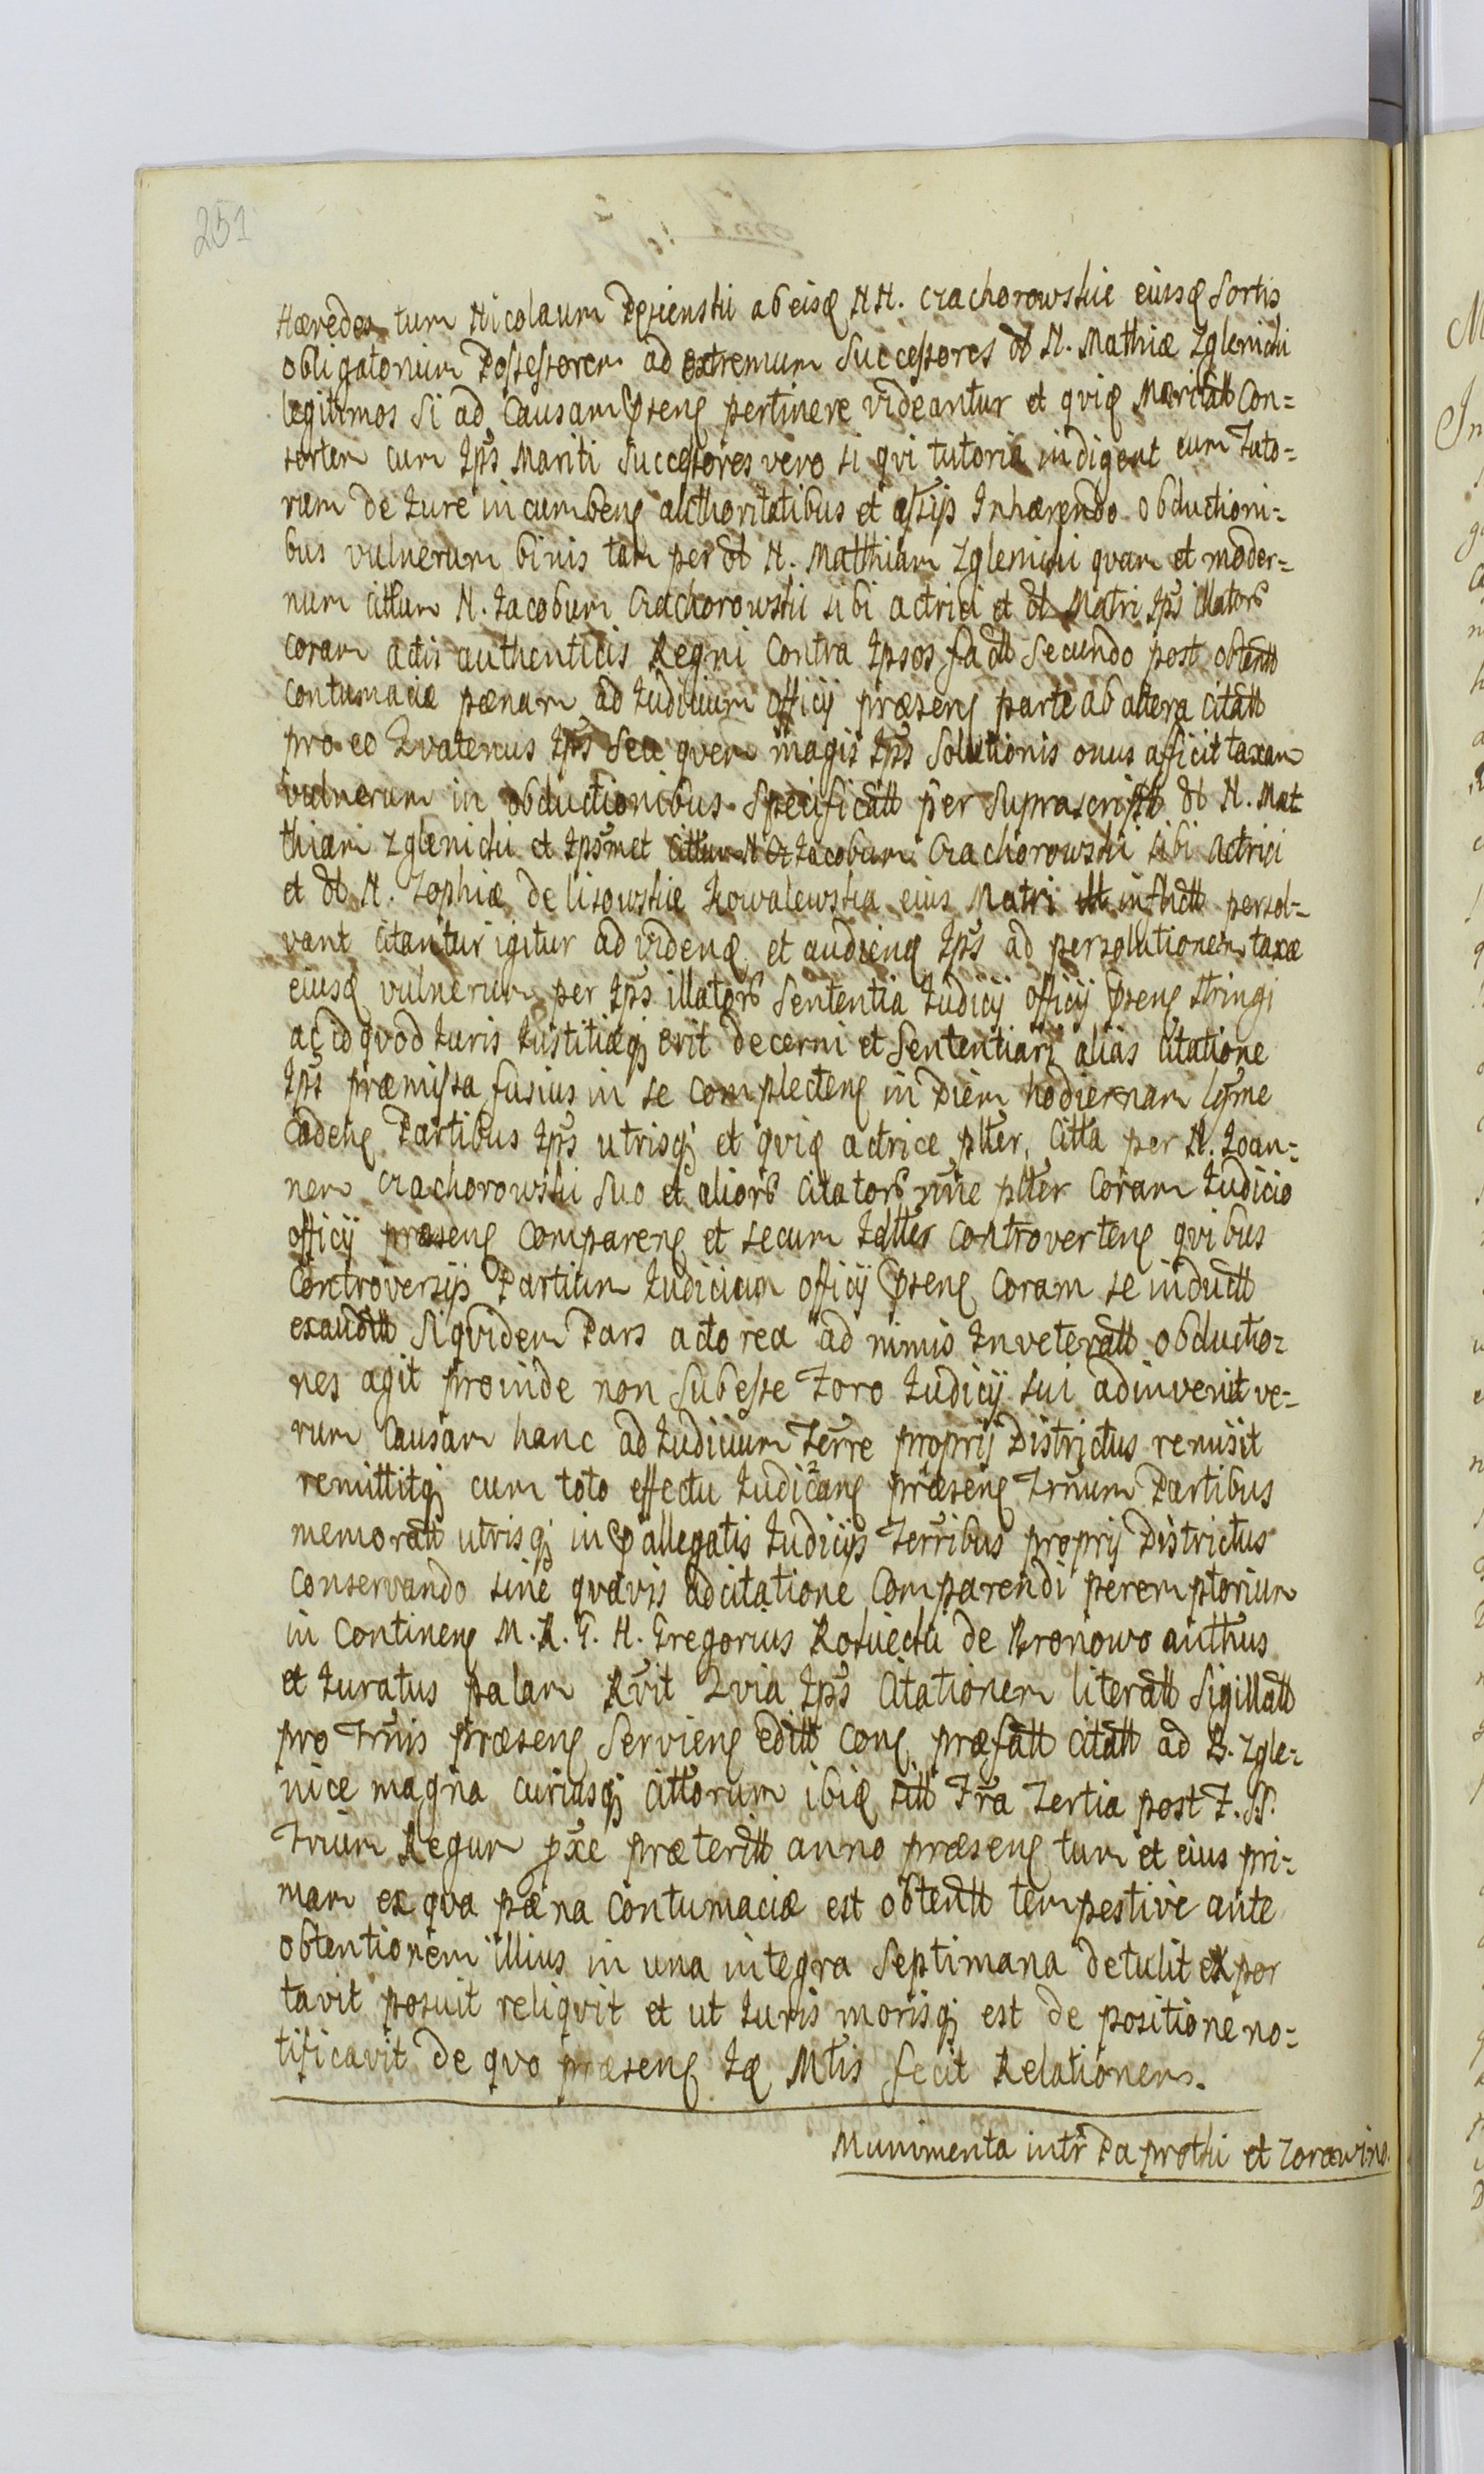 251
Hæredes tum Nicolaum Pesienski ab eisꝗ NN. Crachorowskie eiusꝗ Sortis
obligatorium Possessorem ad extremum Successores olt N. Mathiæ Zglenicki
legitimos Si ad Causam Pseng pertinere videantur et qviꝗ Maritatt Con=
sortem cum Ips Mariti Successores vero si qvi tutoria indigent cum Tuto=
rum de Iure incumbeng aucthoritatibus et assijs Inhærendo obductioni=
bus vulnerum binis tam per olt N. Matthiam Zglenicki qvam et moder=
num cittum N. Iacobum Crachorowski sibi actrici et olt Matri Ips illators
coram actis authenticis Regni Contra Ipsos factt Secundo post obtentt
contumaciæ pænam ad Iudicium officij præseng parte ab altera citatt
pro eo Qvatenus Ips Seu qvem magis Ips Solutionis onus afficit taxam
vulnerum in obductionibus Specificatt per Suprascriptt olt N. Mat
thiam Zglenicki et Ipsmet Iacobum Crachorowski sibi actrici
et olt N. Zophiæ de lisowskie Kowalewska eius Matri inflictt persol=
vant citantur igitur ad videnꝗ et audienꝗ Ips ad persolutionem taxæ
eiusꝗ vulnerum per Ips illators Sententia Iudicij officij Pseng stringi
ac id qvod Iuris Iustitiæqꝫ erit decerni et Sententiari alias citatione
Ips præmissa fusius in se complecteng in Diem hodiernam lgtme
cadeng Partibus Ips utrisqꝫ et qviꝗ actrice plter. citta per N. Ioan=
nem Crachorowski Suo et aliors citators nne plter Coram Iudicio
officij præseng Compareng et secum Ialtter controverteng qvibus
Controversijs Partium Iudicium officij Pseng Coram se inductt
exauditt Siqvidem Pars actorea ad nimis Inveteratt obductio=
nes agit proinde non Subesse Foro Iudicij sui adinvenit ve=
rum Causam hanc ad Iudicium Terre proprij Districtus remisit
remittitqꝫ cum toto effectu Iudicang præseng Trnum Partibus
memoratt utrisqꝫ in Pallegatis Iudicijs Terribus proprij Districtus
Conservando sine qvavis adcitatione Comparendi peremptorium
in Contineng M. R. G. N. Gregorius Kosuicki de Bronowo autthus
et Iuratus palam Rvit Qvia Ips Citationem literatt Sigillatt
pro Trnis præseng Servieng editt Cong præfatt citatt ad B. Zgle=
nice magna curiasqꝫ cittorum ibiꝗ sitt Fra Tertia post F. SS.
Trium Regum pxe præteritt anno præseng tum et eius pri=
mam ex qva pæna contumaciæ est obtentt tempestive ante
obtentionem illius in una integra Septimana detulit expor
tavit posuit reliqvit et ut Iuris morisqꝫ est de positione no=
tificavit de qvo præseng Iꝗ Mtis fecit Relationem.
Munimenta intr Paprotki et Zorawino.